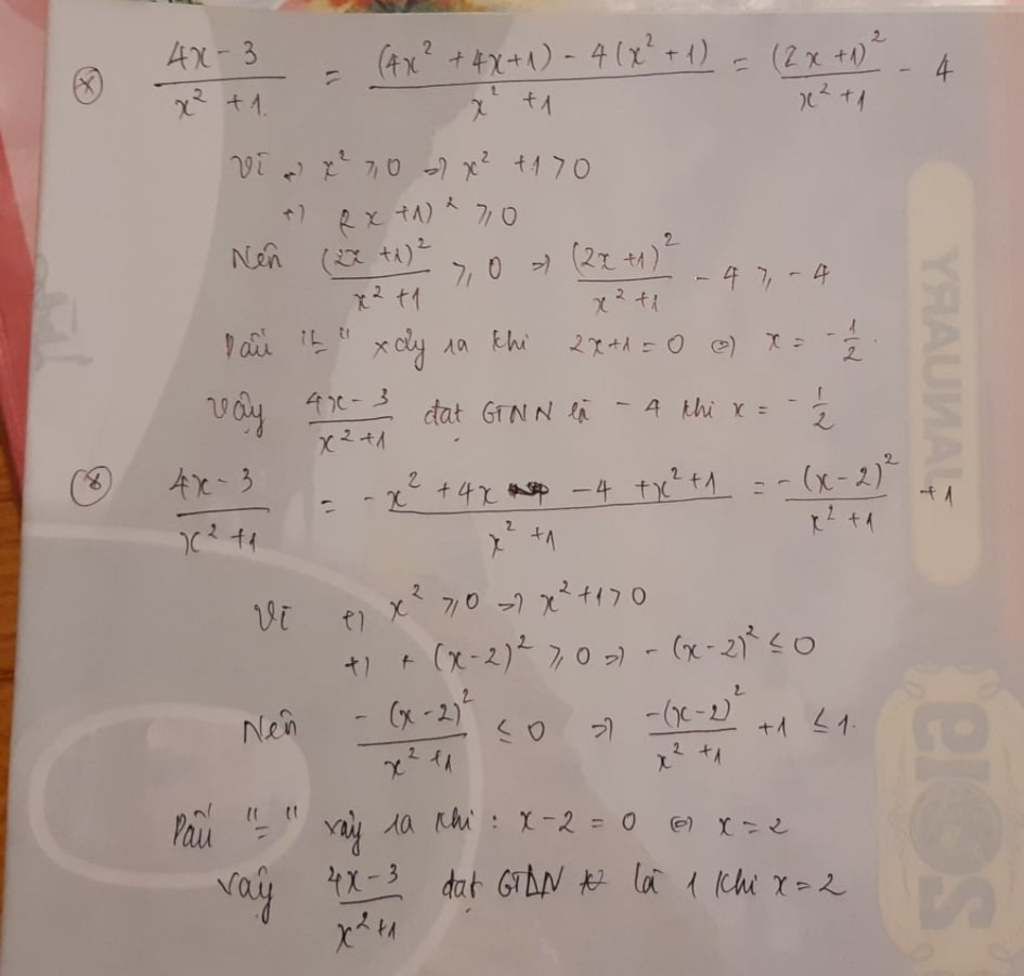 (*) (4x - 3)/(x² + 1) = ((4x² + 4x + 1) - 4(x² + 1))/(x² + 1) = (2x + 1)²/(x² + 1) - 4
Vì +) x² ≥ 0 => x² + 1 > 0
+) (2x + 1)² ≥ 0
Nên (2x + 1)²/(x² + 1) ≥ 0 => (2x + 1)²/(x² + 1) - 4 ≥ -4
Dấu "=" xảy ra khi 2x + 1 = 0 <=> x = -1/2.
Vậy (4x - 3)/(x² + 1) đạt GTNN là -4 khi x = -1/2
(*) (4x - 3)/(x² + 1) = (-x² + 4x - 4 + x² + 1)/(x² + 1) = -(x - 2)²/(x² + 1) + 1
Vì +) x² ≥ 0 => x² + 1 > 0
+) + (x - 2)² ≥ 0 => -(x - 2)² ≤ 0
Nên -(x - 2)²/(x² + 1) ≤ 0 => -(x - 2)²/(x² + 1) + 1 ≤ 1.
Dấu "=" xảy ra khi : x - 2 = 0 <=> x = 2
Vậy (4x - 3)/(x² + 1) đạt GTLN là 1 khi x = 2
JANUARY
2019